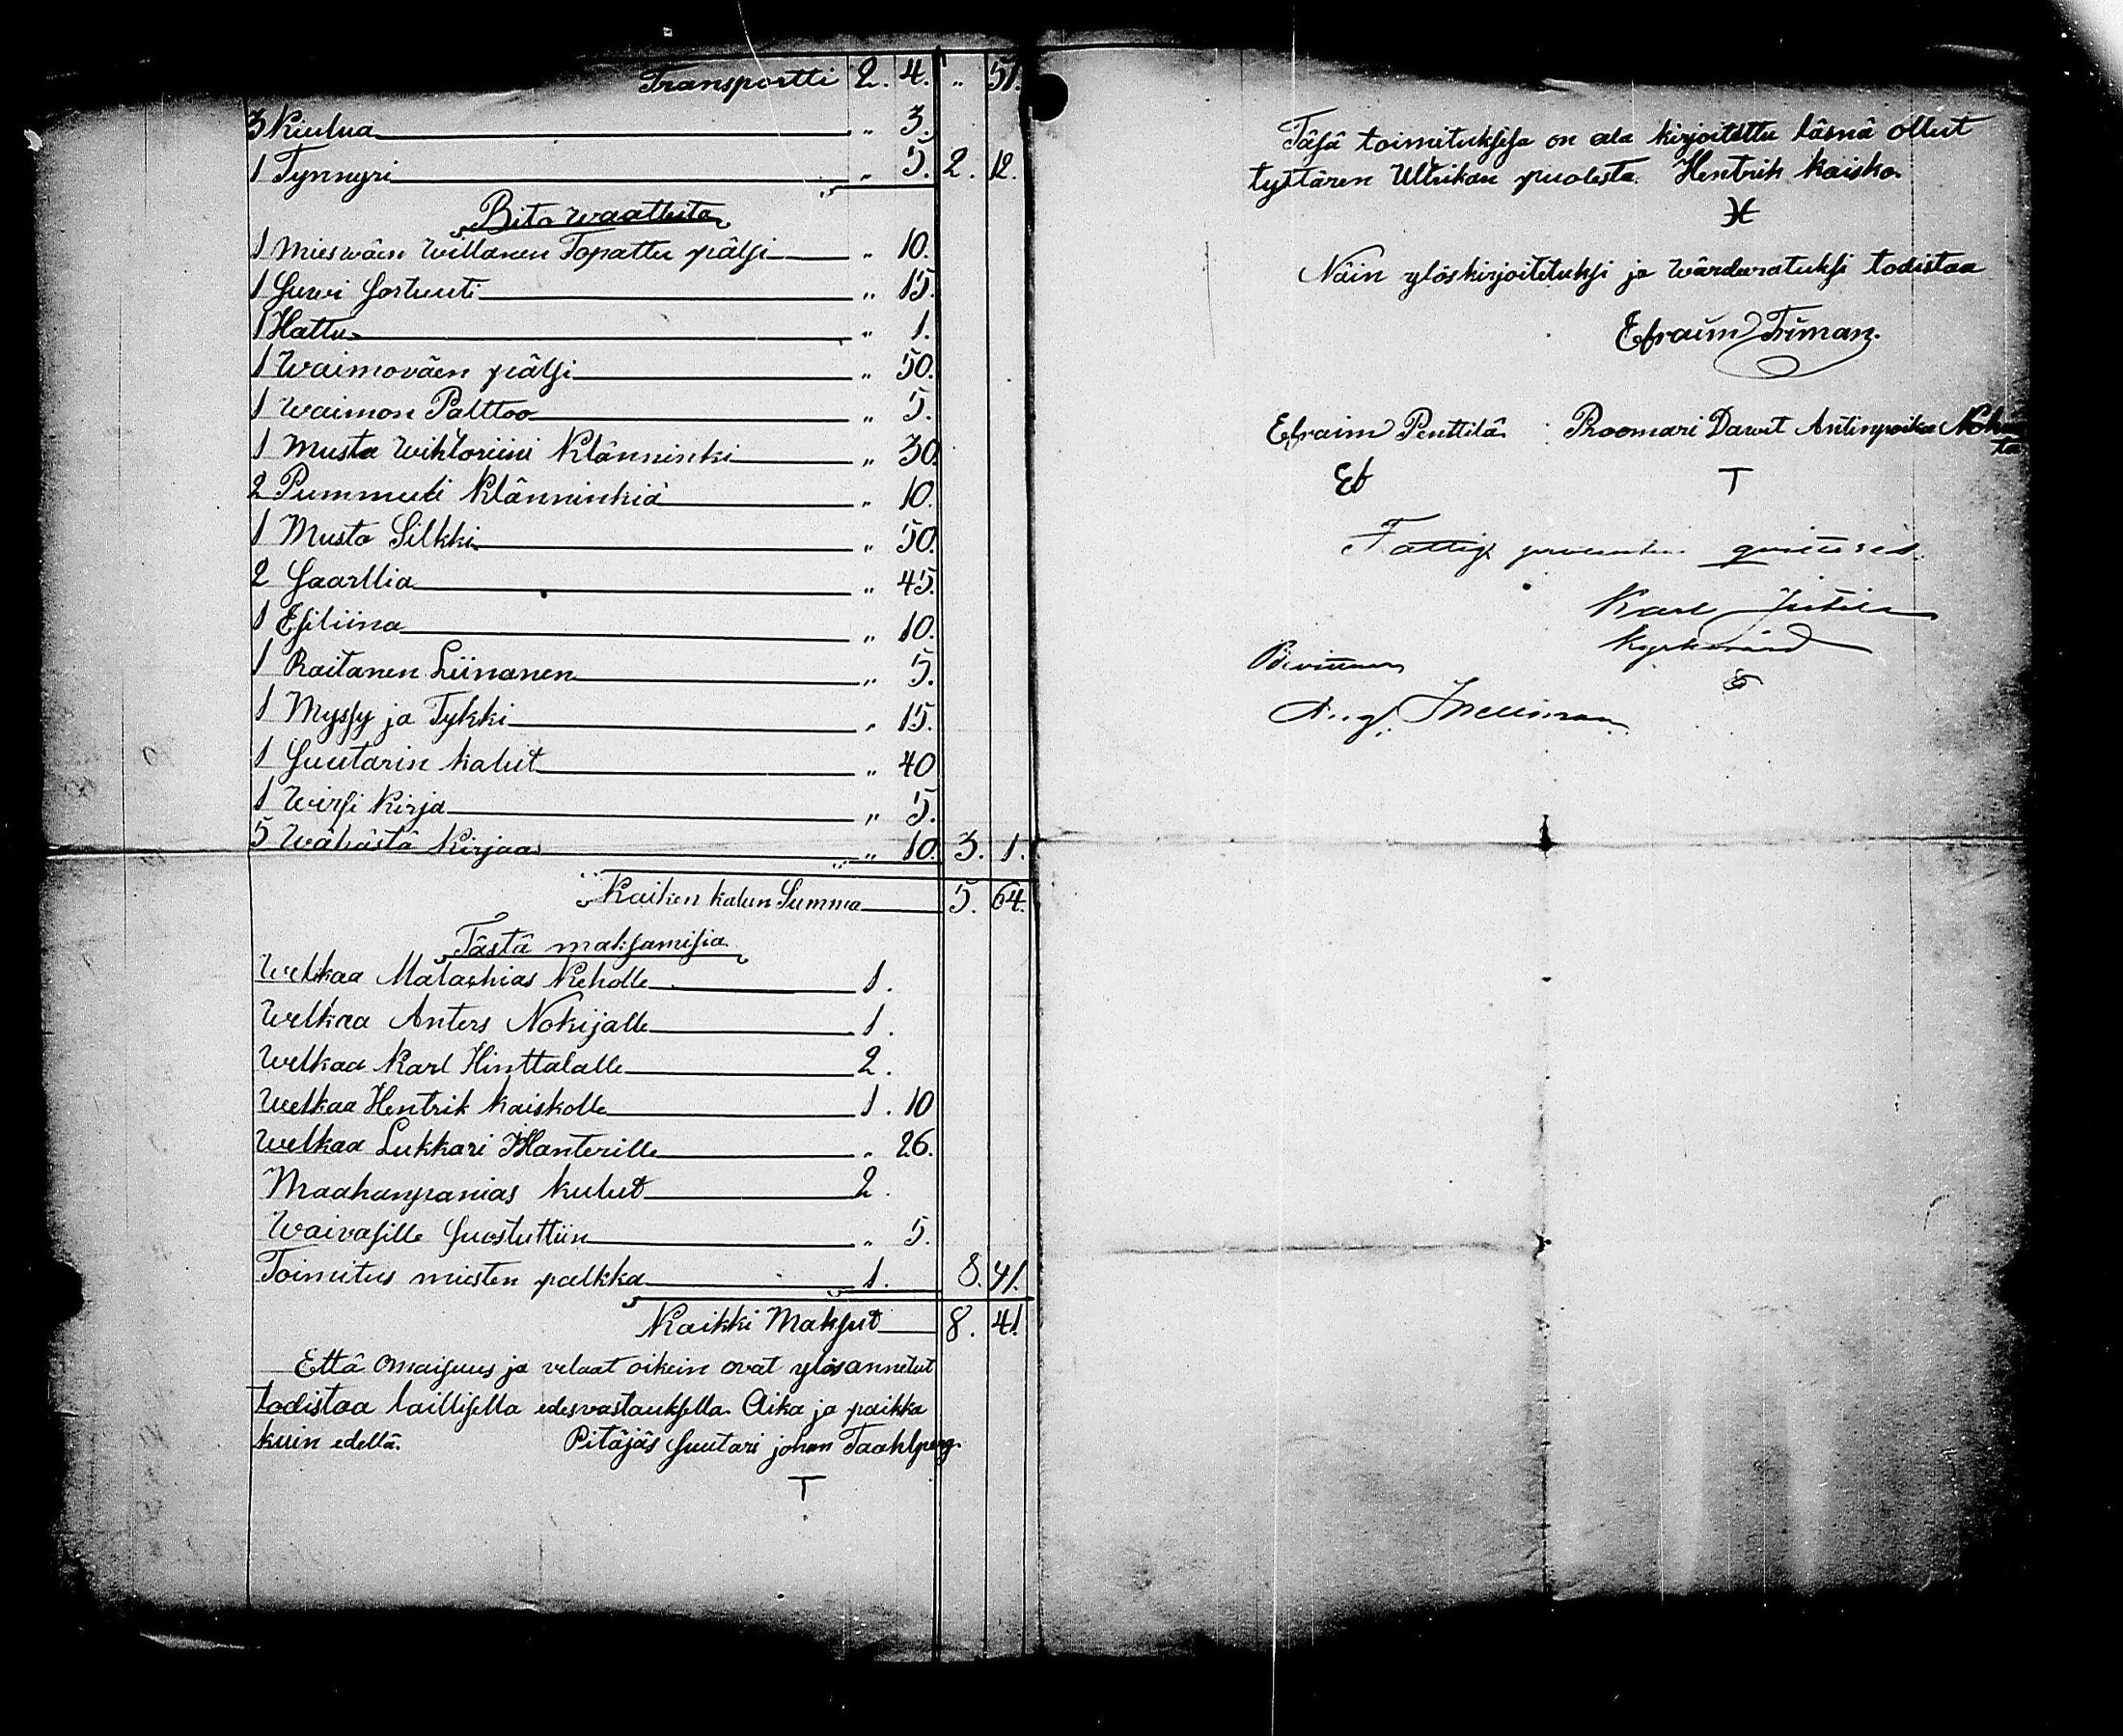 Transportti 2. 4. „ 51.
3 Kiulua „ 3.
1 Tynnyri „ 5. 2. 12.
Pito waatteita
1 Mieswäen willanen Topattu pälsi „ 10.
1 Suwi Sortuuti „ 15.
1 Hattu „ 1.
1 Waimoväen pälsi „ 50.
1 Waimon Palttoo „ 5.
1 Musta Wihtoriini Klänninki „ 30.
2 Pummuli Klänninkiä „ 10.
1 Musta Silkki „ 50.
2 Saarllia „ 45.
1 Esiliina „ 10.
1 Raitanen Liinanen „ 5.
1 Myssy ja Tykki „ 15.
1 Suutarin kalut „ 40
1 Wirsi Kirja „ 5.
5 Wähästä Kirjaa „ 10. 3. 1.
Kaiken kalun Summa 5. 64.
Tästä maksamisia
Welkaa Malachias Keholle 1.
Welkaa Anters Nokijalle 1.
Welkaa Karl Hinttalalle 2.
Welkaa Hentrik Kaiskolle 1. 10
Welkaa Lukkari Hanterille „ 26.
Maahanpanias kulut 2.
Waivasille Suostuttiin „ 5.
Toimitus miesten palkka 1. 8. 41.
Kaikki Maksut 8. 41.
Että Omaisuus ja velaat oikein ovat ylösannetut
todistaa laillisella edesvastauksella. Aika ja paikka
kuin edellä. Pitäjäs Suutari johan Taahlperg.
T
Täsä toimituksesa on ala kirjoitettu läsnä ollut
tyttären Ulrikan puolesta. Hentrik Kaisko.
Näin ylöskirjoitetuksi ja wärderatuksi todistaa
Efraim Friman.
Efraim Penttilä Proomari Dawit Antinpoika
Ef T
Fattig procenten quitteras
Karl
Kyrkovärd
Bevittnar